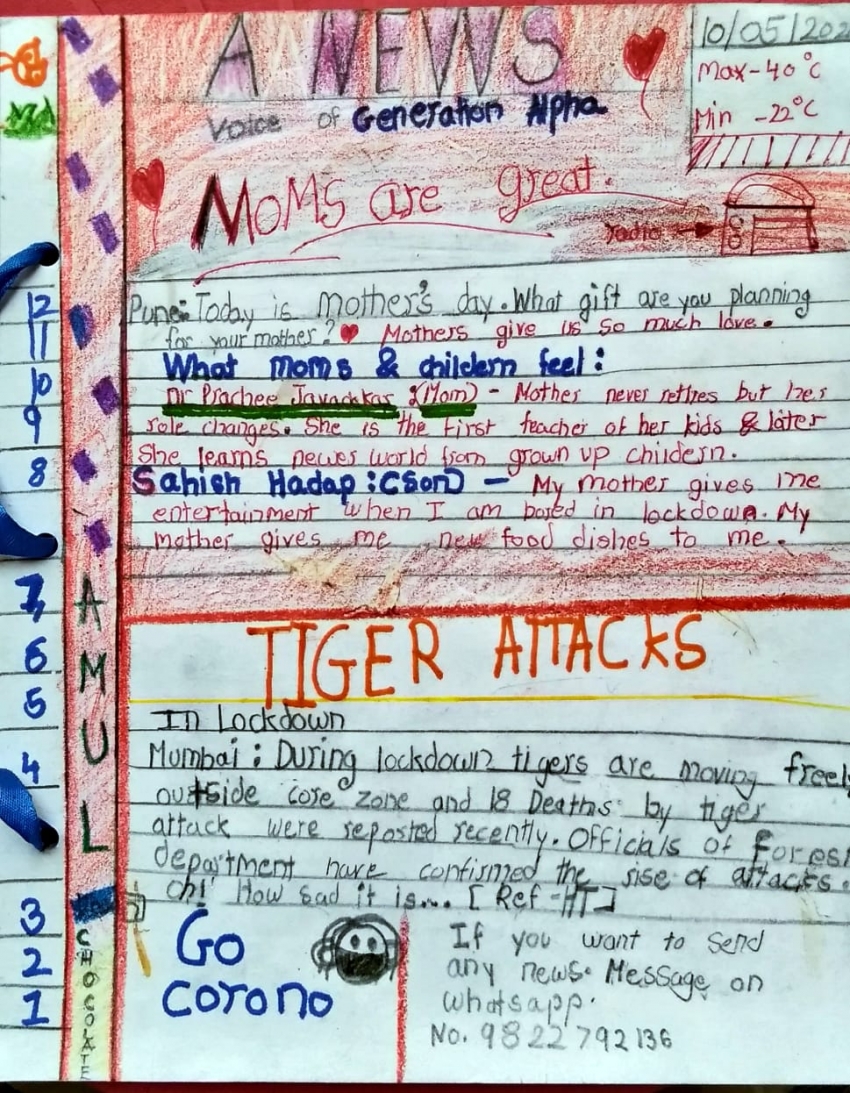 A NEWS
Voice of Generation Alpha
10/05/202
Max-40°C
Min -22°C
MOMS are great.
radio
Pune: Today is mother's day. What gift are you planning
for your mother? Mothers give us so much love.
What moms & childern feel:
Dr Prachee Javadekar (Mom) - Mother never retires but her
role changes. She is the first teacher of her kids & later
She learns newer world from grown up childern.
Sahish Hadap: (Son) - My mother gives me
entertainment when I am bored in lockdown. My
mother gives me new food dishes to me.
TIGER ATTACKS
In Lockdown
Mumbai: During lockdown tigers are moving freely
outside core zone and 18 Deaths by tiger
attack were reposted recently. Officials of Forest
department have confirmed the rise of attacks.
Oh! How sad it is... [Ref-HT]
Go
corono
If you want to send
any news. Message on
whatsapp.
No. 9822792136
12
11
10
9
8
7
6
5
4
3
2
1
AMUL
CHOCOLATE